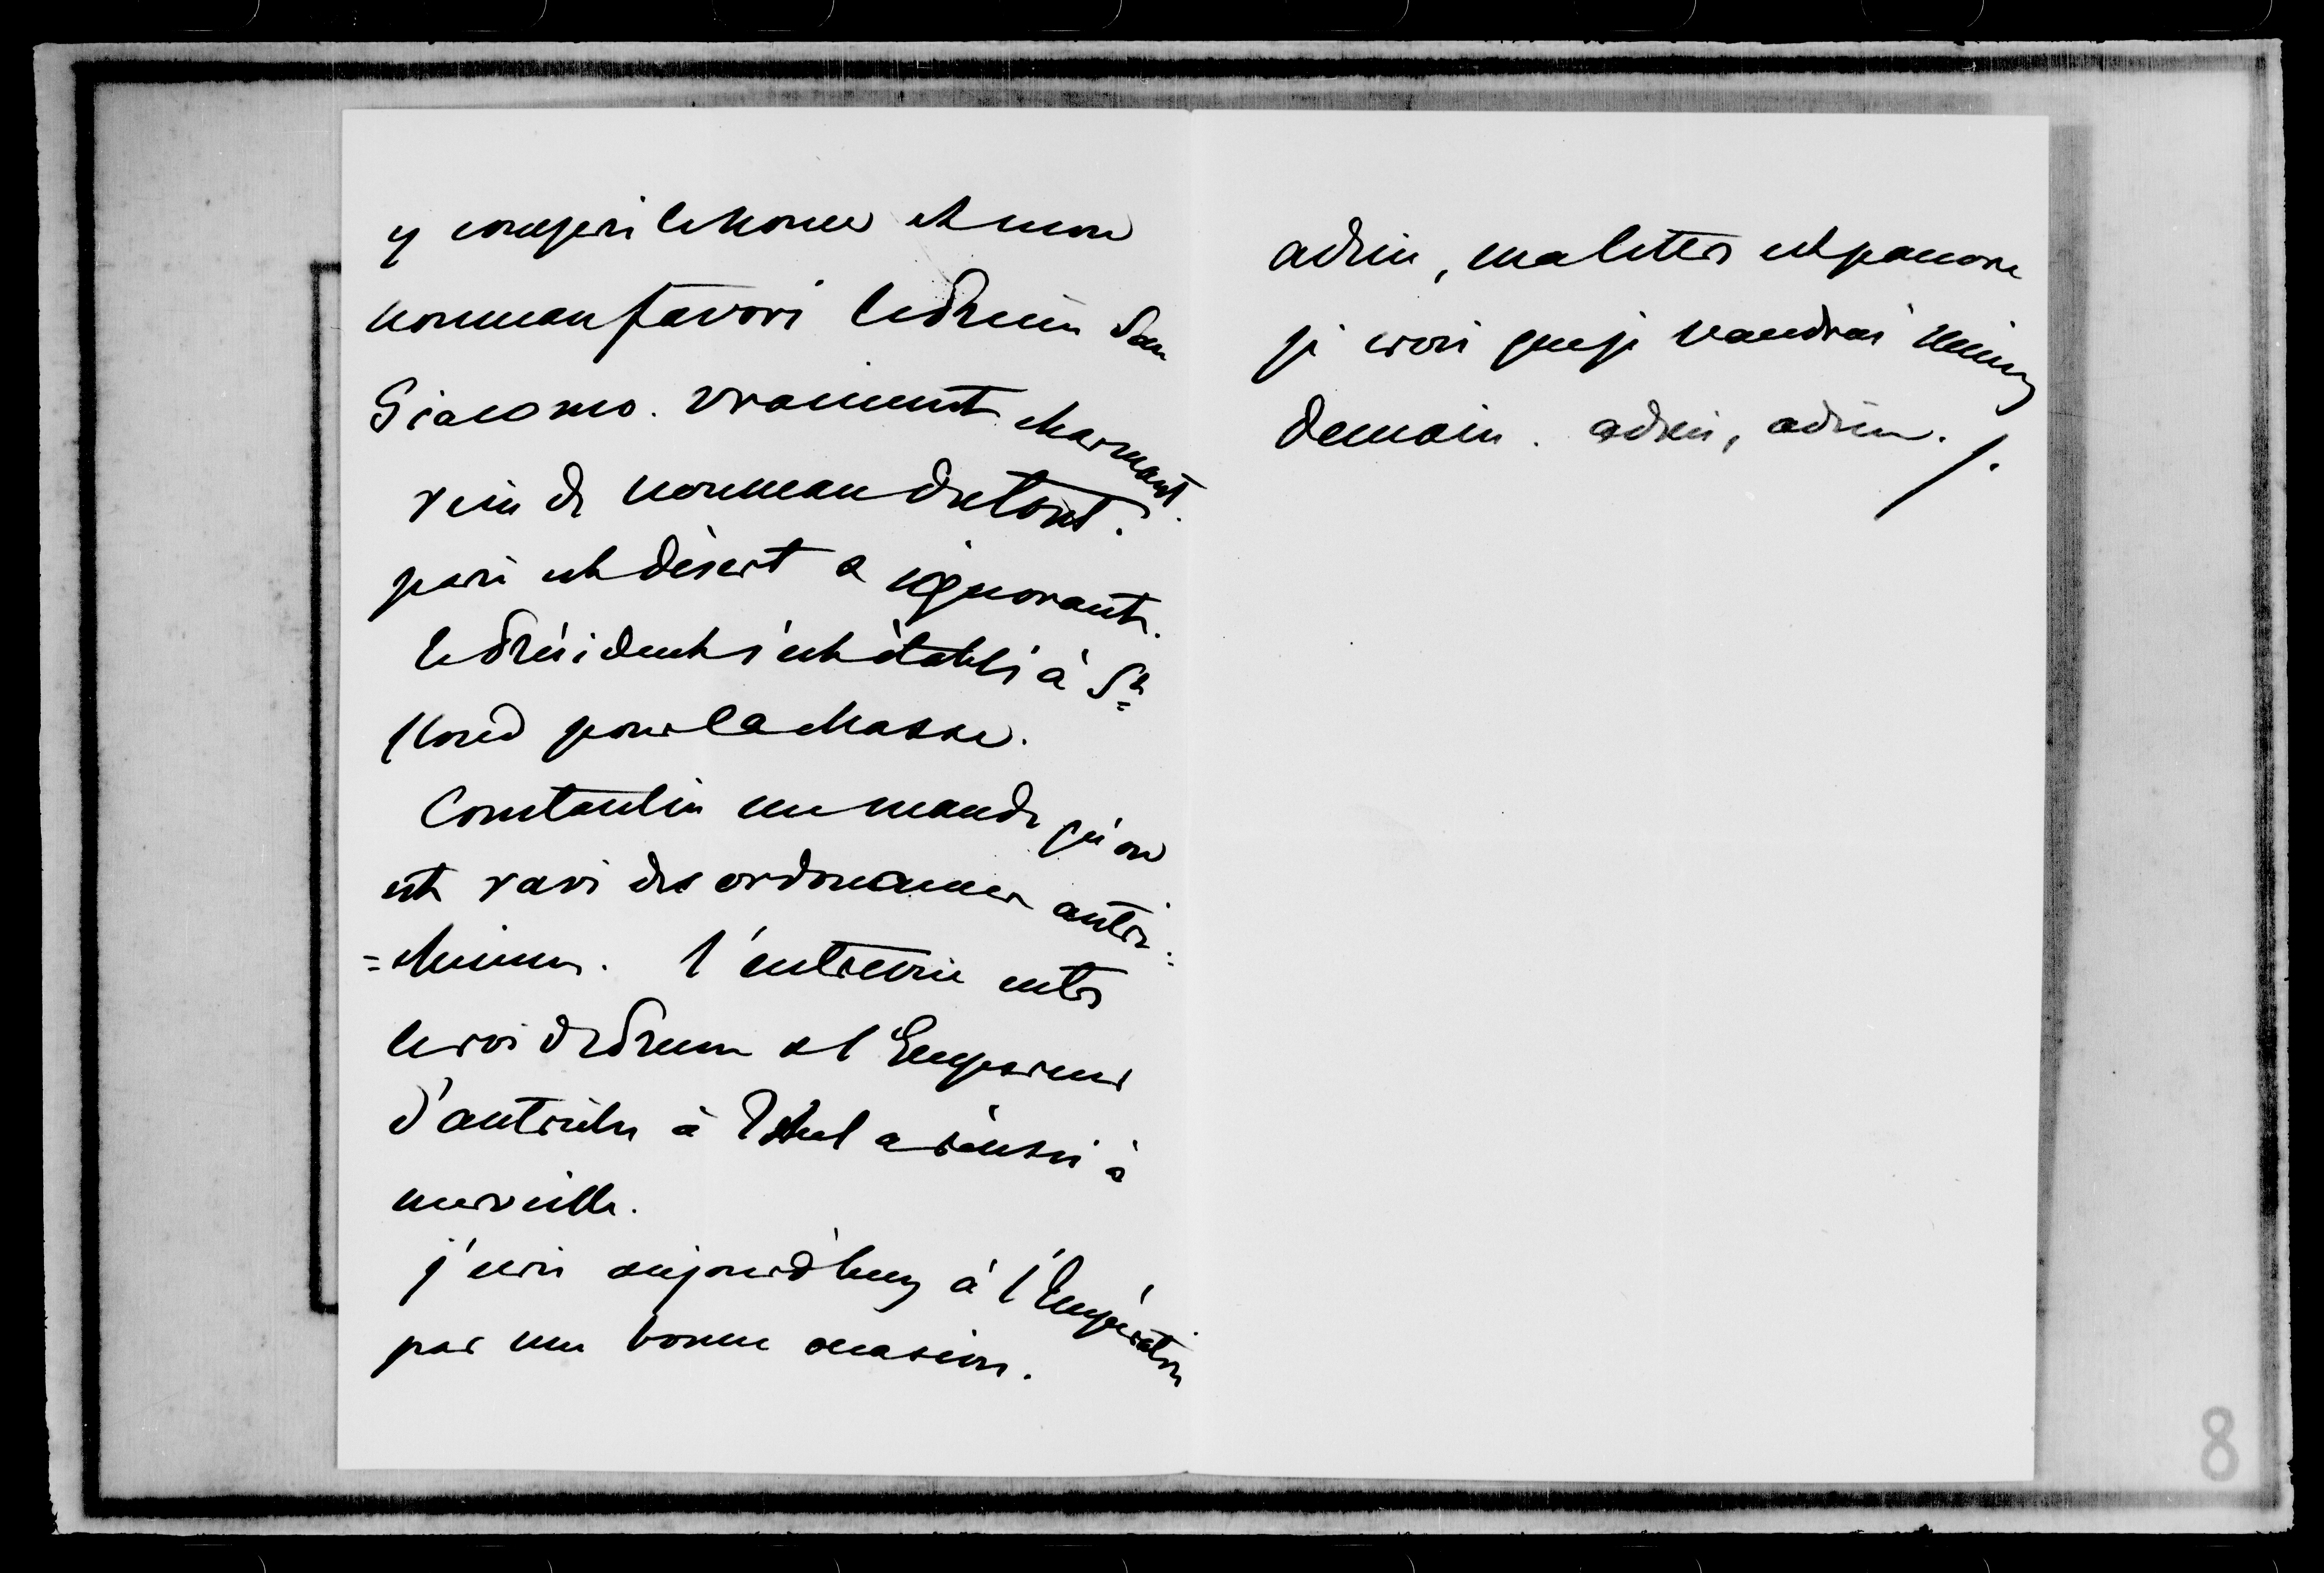 y compris le Kours et mon
nouveau favori le Prince San
Giacomo. Vraiment charmant.
rien de nouveau du tout.
paris est désert & ignorant.
le Président s'est établi à St
Cloud pour la chasse.
Constantin me mande qu'on
est ravi des ordonances autri-
=chiennes. l'entrevue entre
le roi de Prusse & l'Empereur
d'autriche à Ischel a réussi à
merveille.
j'écris aujourd'huy à l'Impératrice
par une bonne occasion.
adieu, ma lettre est pauvre
je crois que je vaudrai mieux
demain. adieu, adieu.
8